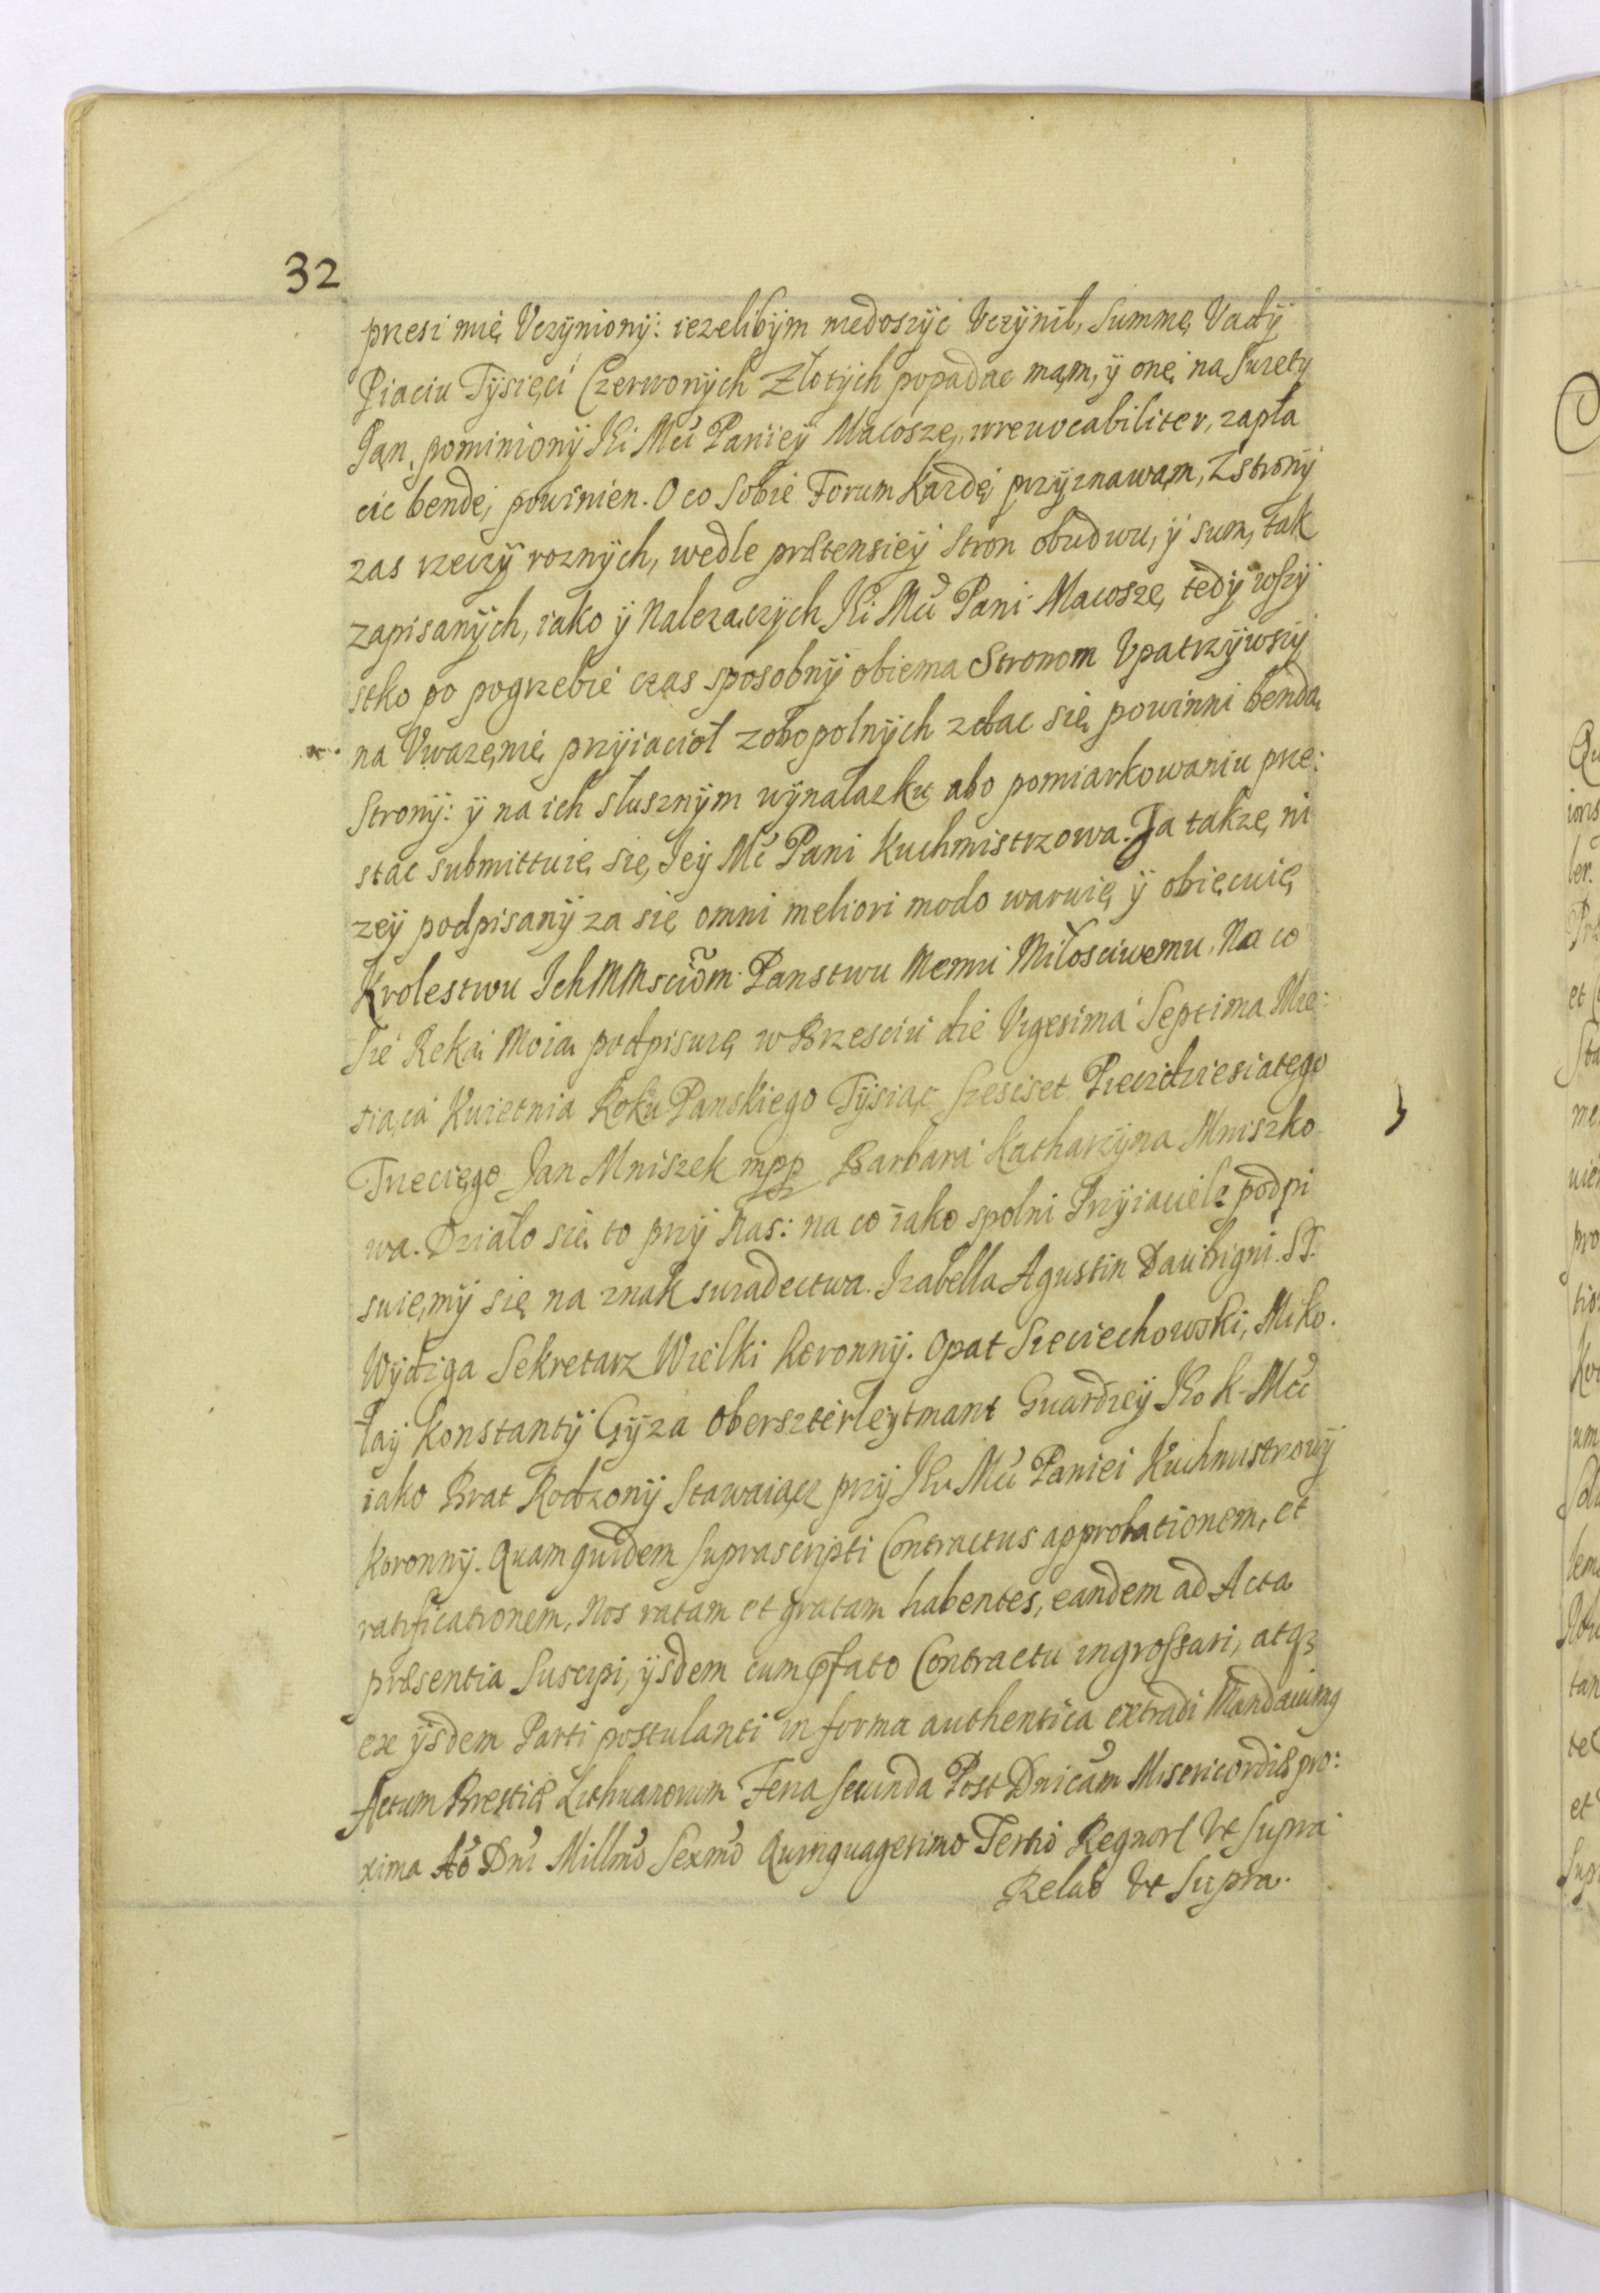 32
przesi mię Vczÿnionÿ: iezelibÿm niedoszÿć Vczÿnił, Summę Vadÿ
Piaciu Tÿsięci Czerwonÿch Złotÿch popadac mąm, ÿ onę na
Pąn pominionÿ Mći Paniey Macosze, irreuocabiliter, zapła
cic bendę powinien. O co Sobie Forum Kazdę przÿznawąm, Z stronÿ
zas rzeczÿ roznÿch, wedle prætensieÿ Stron obudwu, ÿ sum, tak
zapisanÿch, iako ÿ Nalezącÿch Mći Pani Macosze, tedÿ wszÿ
stko po pogrzebie czas sposobnÿ obiema Stronom Vpatrzÿwszÿ
na Vwazęnię przÿiacioł zobopolnÿch zdac się powinni bendą
Stronÿ: ÿ na ich słusznÿm wÿnalazku abo pomiarkowaniu prze:
stac submittuię się Jeÿ Mć Pani Kuchmistrzowa. Ja takze, ni
zeÿ podpisanÿ za się omni meliori modo waruię ÿ obięcuię
Krolestwu Ich MMsciõm Panstwu Memu Miłosciwemu. Na co
się Ręką Moią podpisuię w Brzesciu die Vigesima Septima Mie:
siąca Kwietnia Roku Panskiego Tÿsiąc Szescset Piecidziesiatego
Trzeciego Jan Mniszek mpp Barbara Katharzÿna Mniszko
wa. Działo się to przÿ Nas: na co iako spolni Przÿiaciele podpi
suięmÿ się na znak swiadectwa. Izabella Agustin Daubigni. ST.
Wÿdzga Sekretarz Wielki Koronnÿ. Opat Sieciechowski, Miko.
łaÿ Konstantÿ Gÿza Oberszterleÿtmant Guardieÿ Ko K Mći
iako Brat Rodzonÿ Stawaiącz przÿ Mći Paniei Kuchmistrzowÿ
Koronnÿ. Quamquidem suprascripti Contractus approbationem, et
ratificationem, Nos ratam et gratam habentes, eandem ad Acta
præsentia Suscipi, ÿsdem cum pfato Contractu ingrossari, atqz
ex ÿsdem Parti postulanti in forma authentica extradi Mandauimg
Actum Brestiæ Lithuanorum Feria Secunda Post Dnicam Misericordiæ pro:
xima Ao Dni Millmo Sexmo Quinquagesimo Tertio Regnor Vt Supra
Relao Vt Supra.